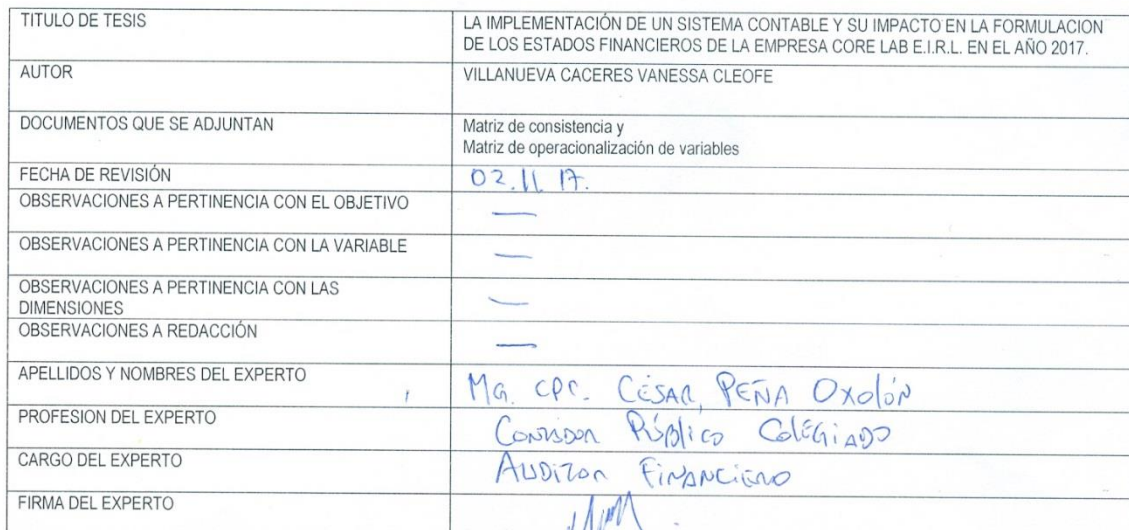 TITULO DE TESIS
LA IMPLEMENTACIÓN DE UN SISTEMA CONTABLE Y SU IMPACTO EN LA FORMULACION
DE LOS ESTADOS FINANCIEROS DE LA EMPRESA CORE LAB E.I.R.L. EN EL AÑO 2017.
AUTOR
VILLANUEVA CACERES VANESSA CLEOFE
DOCUMENTOS QUE SE ADJUNTAN
Matriz de consistencia y
Matriz de operacionalización de variables
FECHA DE REVISIÓN
02.11.17.
OBSERVACIONES A PERTINENCIA CON EL OBJETIVO
—
OBSERVACIONES A PERTINENCIA CON LA VARIABLE
—
OBSERVACIONES A PERTINENCIA CON LAS
DIMENSIONES
—
OBSERVACIONES A REDACCIÓN
—
APELLIDOS Y NOMBRES DEL EXPERTO
MG. CPC. CÉSAR, PEÑA OXOLÓN
PROFESION DEL EXPERTO
CONTADOR PÚBLICO COLEGIADO
CARGO DEL EXPERTO
AUDITOR FINANCIERO
FIRMA DEL EXPERTO